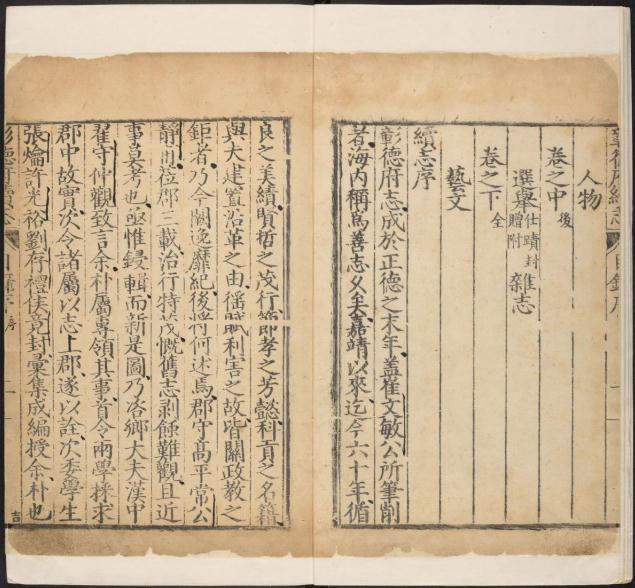 人物
卷之中 後
選舉 仕蹟封贈附 雜志
卷之下 全
藝文
續志序
彰德府志成於正德之末年蓋崔文敏公所筆削
者海内稱爲善志久矣嘉靖以來迄今六十年循
良之美績賢哲之茂行節孝之芳懿科貢之名籍
與夫建置沿革之由徭賦利害之故皆關政教之
鉅者乃今闕逸靡紀後將何述焉郡守高平常公
靜宇蒞郡三載治行特茂慨舊志剥蝕難觀且近
事莫考也亟惟鋟輯而新是圖乃咨鄉大夫漢中
翟守仲觀致言余朴屬專領其事首令兩學採求
郡中故實次令諸屬以志上郡遂以詮次委學生
張爚許光裕劉存禮侯竟封彙集成編授余朴也
彰德府續志
吉